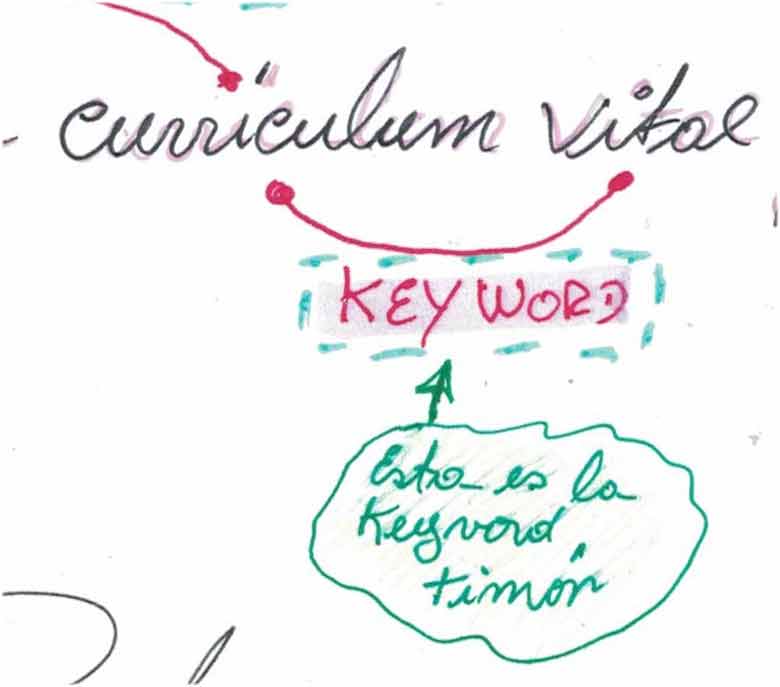 currículum vital
KEYWORD
Esta es la
Keyword
timón